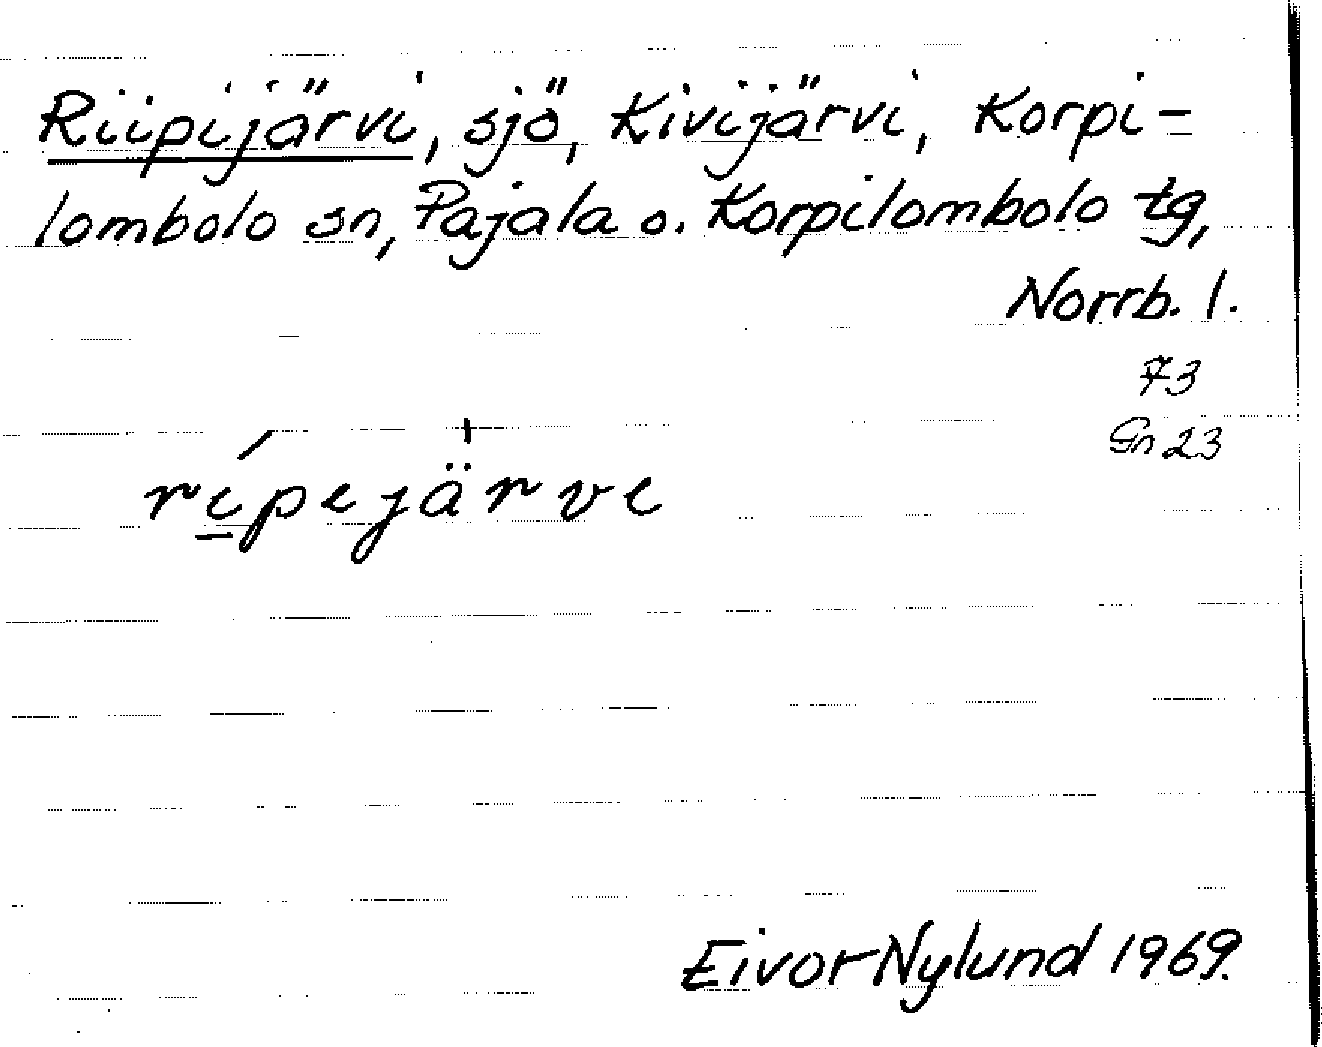 Riipijärvi, sjö, Kivijärvi, Korpi-
lombolo sn, Pajala o. Korpilombolo tg,
Norrb. l.
73
Gn 23
rípejärve
Eivor Nylund 1969.